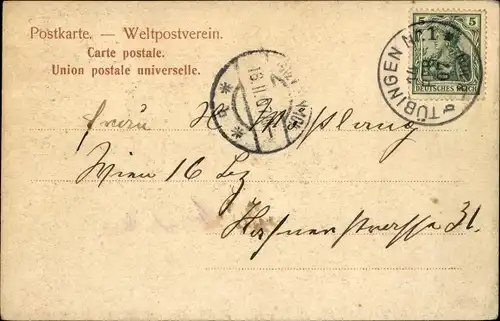 Postkarte. — Weltpostverein.
Carte postale.
Union postale universelle.
5 5
DEUTSCHES REICH
TÜBINGEN No. 1
07
16.II.0
Frau
Wien 16 Bez
Hasnerstrasse 31.